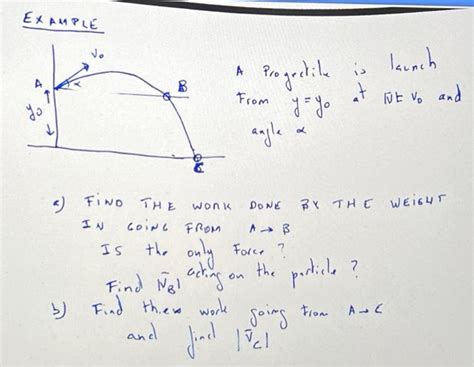 EXAMPLE
V₀
A
α
B
y₀
C
A Progectile is launch
From y=y₀ at |v̄|= V₀ and
angle α
a) FIND THE WORK DONE BY THE WEIGHT
IN GOING FROM A → B
Is the only Force ?
acting on the particle ?
Find |V̄B|
b) Find the work going from A → C
and find |V̄c|